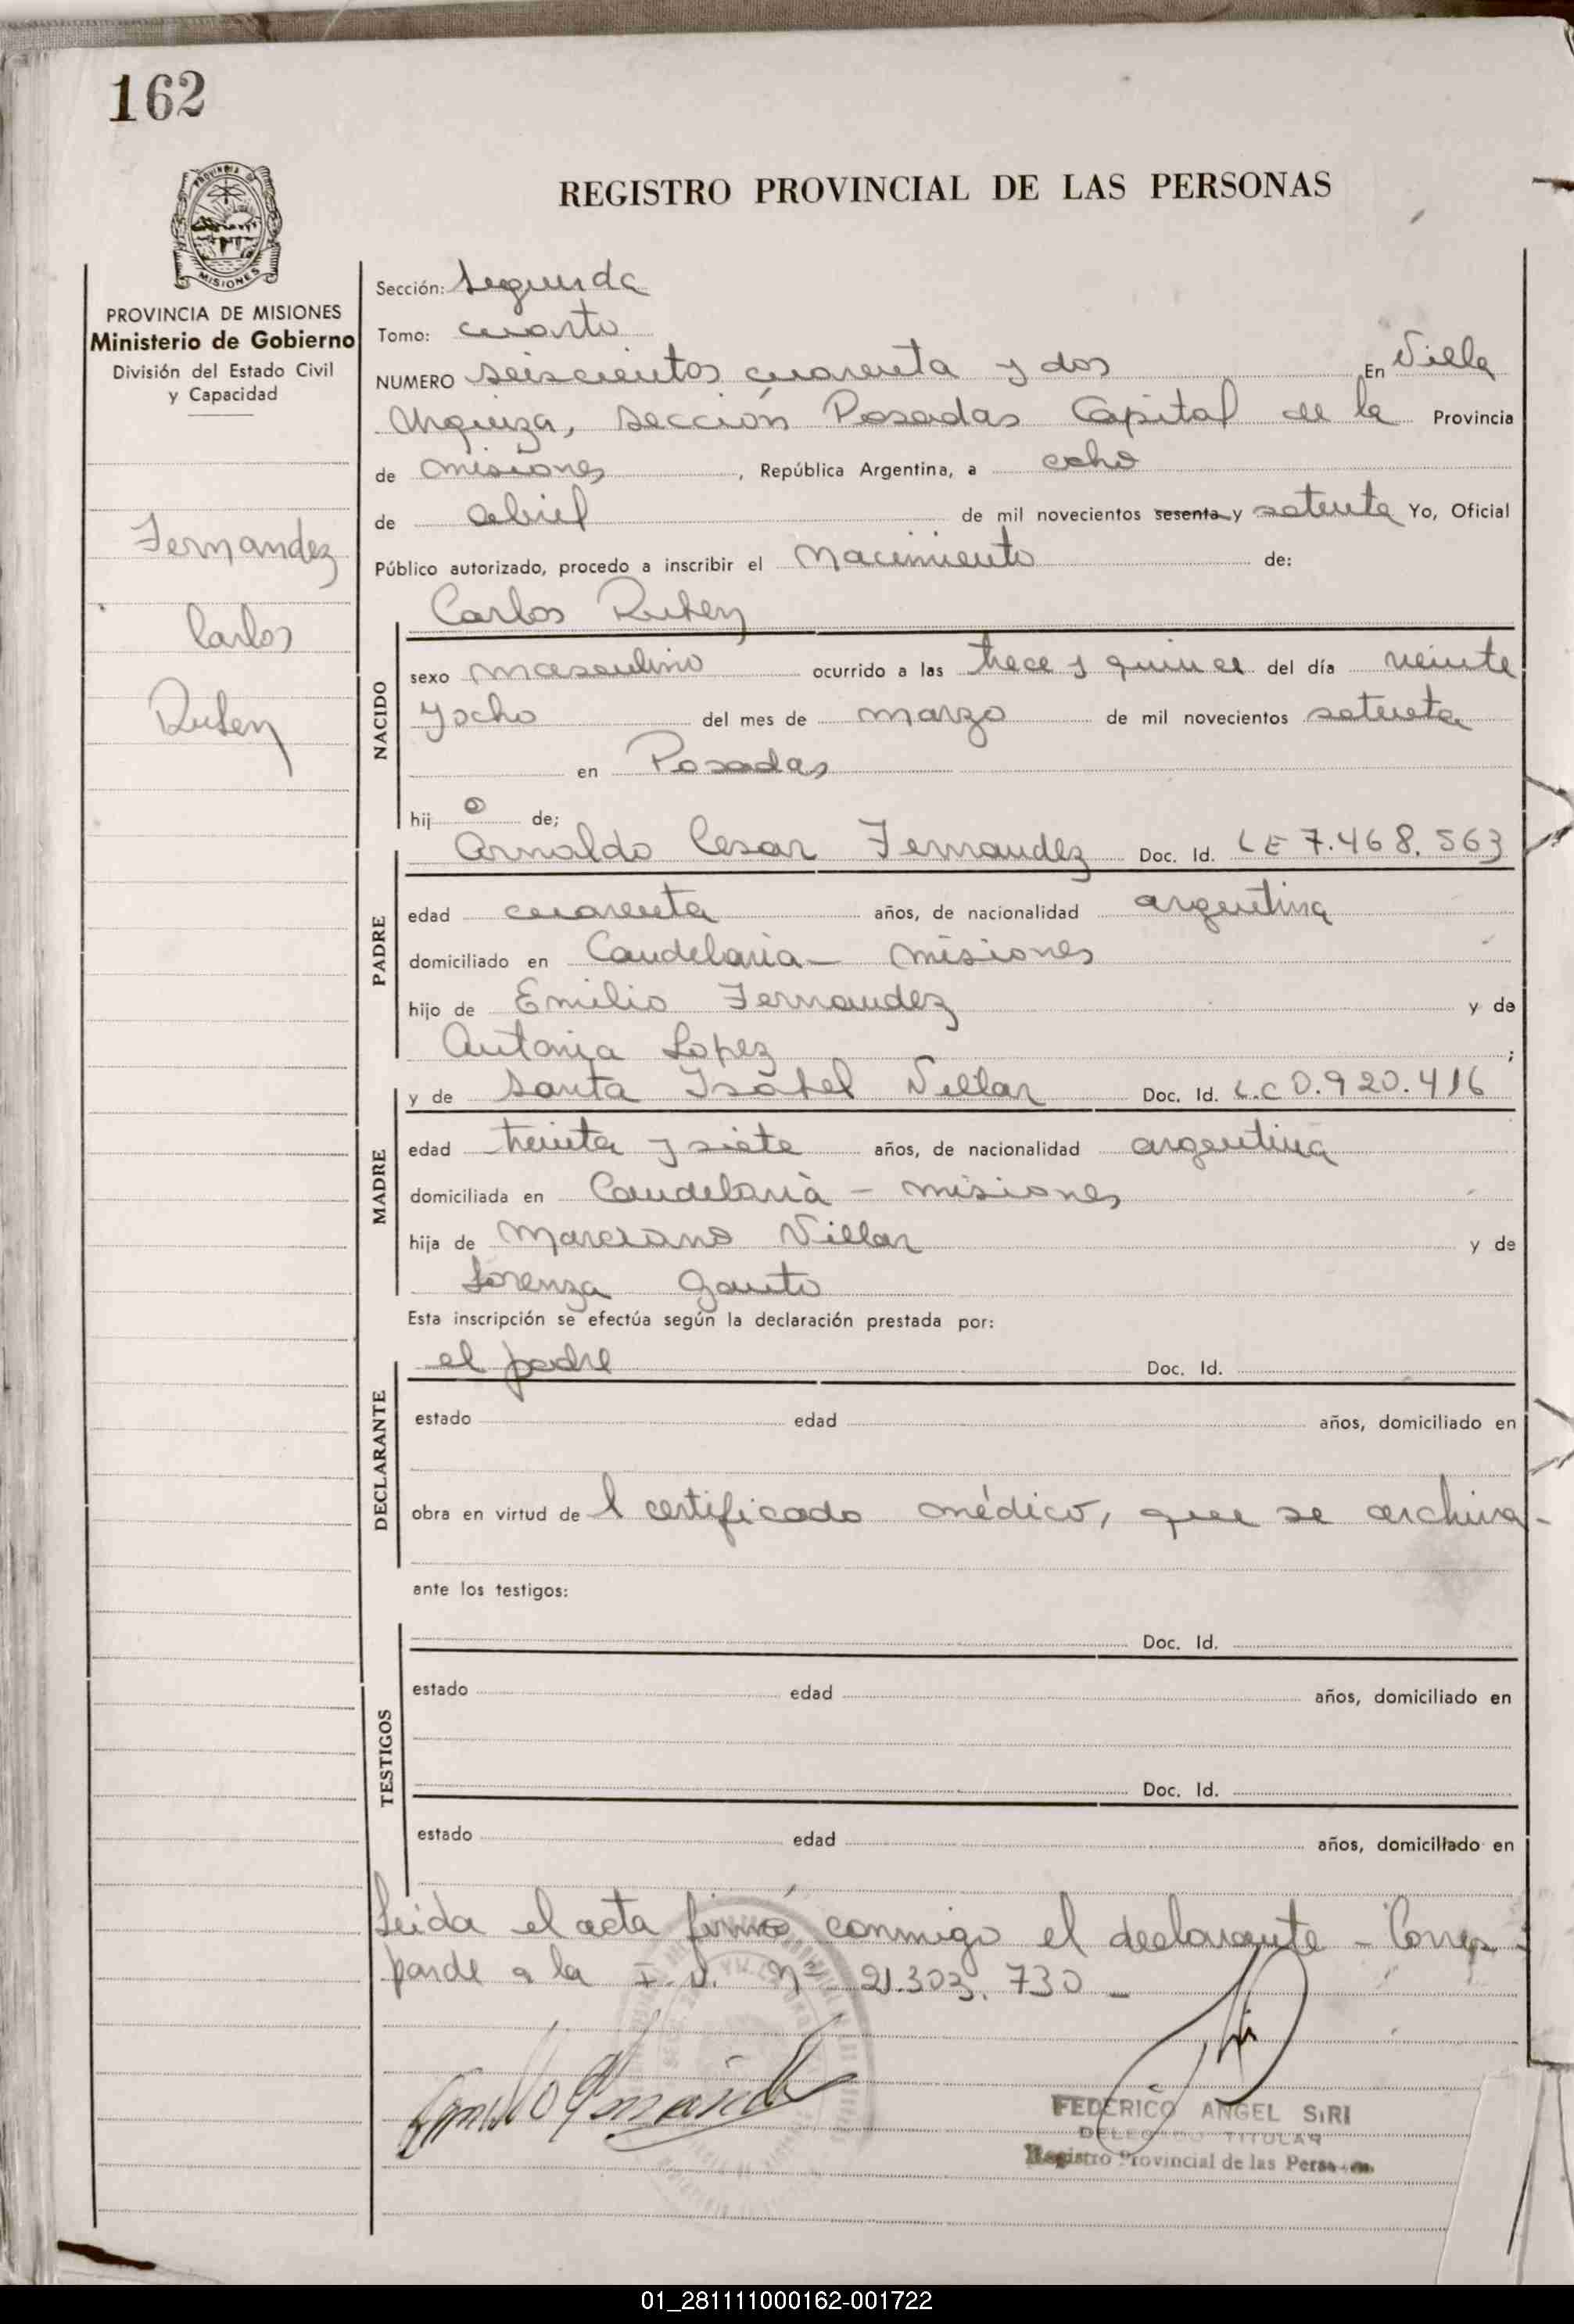 162
PROVINCIA DE
MISIONES
REGISTRO PROVINCIAL DE LAS PERSONAS
PROVINCIA DE MISIONES
Ministerio de Gobierno
División del Estado Civil
y Capacidad
Fernandez
Carlos
Ruben
Sección: Segunda
Tomo: cuarto
NUMERO seiscientos cuarenta y dos En Villa
Urquiza, sección Posadas Capital de la Provincia
de Misiones, República Argentina, a ocho
de abril de mil novecientos sesenta y setenta Yo, Oficial
Público autorizado, procedo a inscribir el Nacimiento de:
Carlos Ruben
NACIDO
sexo masculino ocurrido a las trece y quince del día veinte
y ocho del mes de marzo de mil novecientos setenta
en Posadas
hij o de;
Arnaldo Cesar Fernandez Doc. Id. LE 7.468.563
PADRE
edad cuarenta años, de nacionalidad argentina
domiciliado en Candelaria - Misiones
hijo de Emilio Fernandez y de
Antonia Lopez ;
y de Santa Isabel Villar Doc. Id. L.C 0.920.416
MADRE
edad treinta y siete años, de nacionalidad argentina
domiciliada en Candelaria - Misiones
hija de Marciano Villar y de
Lorenza Gauto
Esta inscripción se efectúa según la declaración prestada por:
el padre Doc. Id.
DECLARANTE
estado edad años, domiciliado en
obra en virtud de l certificado médico, que se archiva-
ante los testigos:
Doc. Id.
TESTIGOS
estado edad años, domiciliado en
Doc. Id.
estado edad años, domiciliado en
Leida el acta firmó conmigo el declarante - Corres-
ponde a la I.D. Nº 21.303.730 -
FEDERICO ANGEL SIRI
DELEGADO TITULAR
Registro Provincial de las Personas
01_281111000162-001722